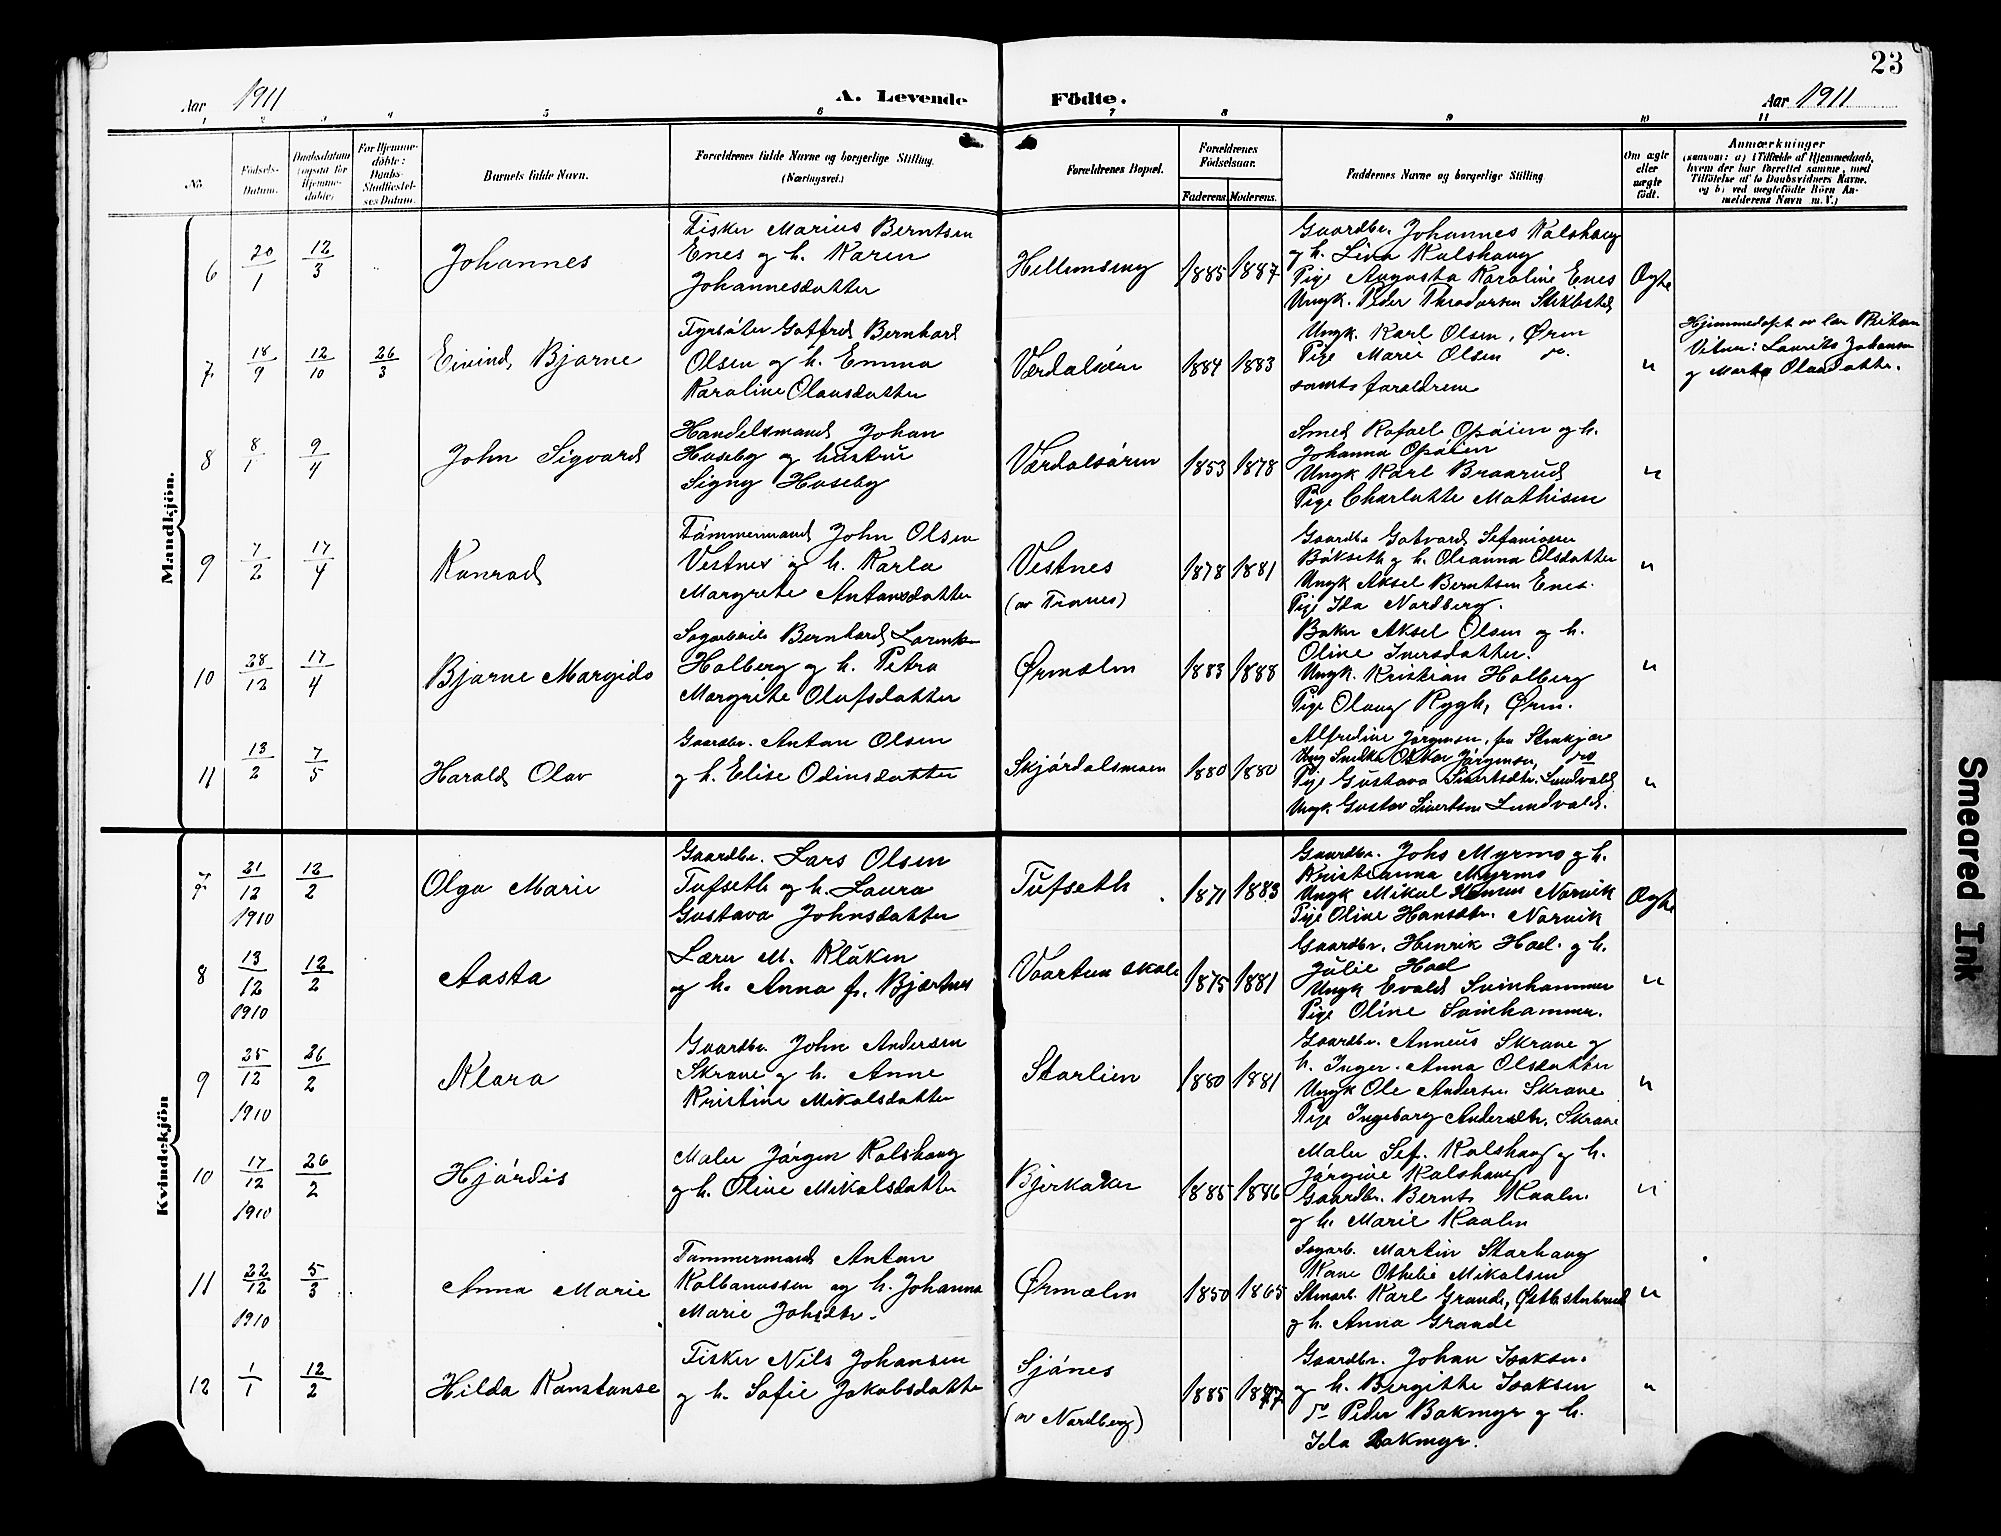 23
Aar 1911 A. Levende Födte. Aar 1911
1 2 3 4 5 6 7 8 9 10 11
No. Födsels-Datum. Daabsdatum (ogsaa for Hjemme-döbte) For Hjemme-döbte: Daabs-Stadfæstel-ses Datum. Barnets fulde Navn. Forældrenes fulde Navne og borgerlige Stilling. (Næringsvei.) Forældrenes Bopæl. Forældrenes Födselsaar. Faderens. Moderens. Faddernes Navne og borgerlige Stilling. Om ægte eller uægte födt. Anmærkninger (saasom: a) i Tilfælde af Hjemmedaab, hvem der har forrettet samme, med Tilföielse af to Daabsvidners Navne, og b) ved uægtefödte Börn An-melderens Navn m. V.)
Mandkjön.
6 20/1 12/3 Johannes
Fisker Marius Berntsen
Enes og h. Karen
Johannesdatter
Hellemsmyr 1885 1887
Gaardbr. Johannes Kalshaug
og h. Liva Kalshaug
Pige Augusta Karoline Enes
Ungk. Peder Theodorsen Stiklestad
Ægte
7 18/9 12/10 26/3 Eivind Bjarne
Fyrböter Gotfred Bernhard
Olsen og h. Emma
Karoline Olausdatter
Værdalsören 1884 1883
Ungk. Karl Olsen, Ørm
Pige Marie Olsen do.
samt foraldrene
"
Hjemmedøpt av
Vitner: Laurits Johansen
og Marta Olausdatter.
8 8/1 9/4 John Sigvard
Handelsmand Johan
Huseby og hustru
Signy Huseby
Værdalsören 1853 1878
Smed Rafael Opöien og h.
Johanna Opöien
Ungk Karl Braarud
Pige Charlotte Mathisen
"
9 7/2 17/4 Konrad
Tömmermand John Olsen
Vestnes og h. Karla
Margrete Antonsdatter
Vestnes
(av Tranes)
1878 1881
Gaardbr Gotvard Sefaniassen
Bökseth og h. Oleanna Olsdatter
Ungk Aksel Berntsen Enes.
Pige Ida Nordberg.
"
10 28/12 17/4 Bjarne Margido
Sagarbeider Bernhard
Holberg og h. Petra
Margrete Olufsdatter
Ørmælen 1883 1888
Baker Aksel Olsen og h.
Oline Iversdatter.
Ungk. Kristian Holberg
Pige Olaug Rygh, Ørm.
"
11 13/2 7/5 Harald Olav
Gaardbr. Anton Olsen
og h. Elise Odinsdatter
Skjördalsmoen 1880 1880
Alfredine Jørgensen, fra Stenkjær
Ung Snedker Oskar Jørgensen, do
Pige Gustava Sivertsdtr. Lundvald
Ungk. Gustav Sivertsen Lundvald.
"
Kvindekjön
7 21/12 1910 12/2 Olga Marie
Gaardbr. Lars Olsen
Tufseth og h. Laura
Gustava Johnsdatter
Tufseth 1871 1883
Gaardbr. Johs Myrmo og h.
Kristianna Myrmo
Ungk Mikal Norvik
Pige Oline Hansdtr. Norvik
Ægte
8 13/12 1910 12/2 Aasta
Lærer M. Klüken
og h. Anna f. Bjærtnes
Vaartun skole 1875 1881
Gaardbr. Henrik Hoel og h.
Julie Hoel
Ungk Evald Svinhammer
Pige Oline Svinhammer.
"
9 25/12 1910 26/2 Klara
Gaardbr. John Andersen
Skrove og h. Anne
Kristine Mikalsdatter
Storlien 1880 1881
Gaardbr. Anneus Skrove og
h. Inger-Anna Olsdatter
Ungk Ole Andersen Skrove
Pige Ingeborg Andersdtr. Skrove
"
10 17/12 1910 26/2 Hjördis
Maler Jörgen Kalshaug
og h. Oline Mikalsdatter
Bjerkaker 1885 1886
Maler Sef. Kalshaug og h.
Jörgine Kalshaug
Gaardbr. Bernt Kaalen
og h. Marie Kaalen
"
11 22/12 1910 5/3 Anna Marie
Tømmermand Anton
Kolbanussen og h. Johanna
Marie Johsdtr.
Ørmælen 1850 1865
Sagarb. Martin Storhaug
Kone Othelie Mikalsen
Stenarb. Karl Grande,
og h. Anna Grande
"
12 1/1 12/2 Hilda Konstanse
Fisker Nils Johansen
og h. Sofie Jakobsdatter
Sjönes
(av Nordberg)
1885
Gaardbr. Johan Isaksen
og h. Bergitte Isaksen
do Peder Bakmyr og h.
Ida Bakmyr.
"
Smeared Ink